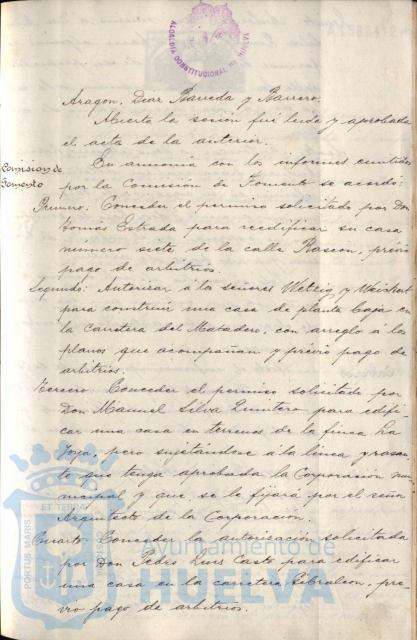 ALCALDIA CONSTITUCIONAL DE HUELVA
Aragon, Diaz Barreda y Barrero.
Abierta la sesión fué leida y aprobada
el acta de la anterior.
Comision de
Fomento
En armonía con los informes emitidos
por la Comisión de Fomento se acordó:
Primero: Conceder el permiso solicitado por Don
Tomás Estrada para reedificar su casa
número siete de la calle Rascon, previo
pago de arbitrios.
Segundo: Autorizar á la señores Wetzig y
para construir una casa de planta baja en
la Carretera del Matadero, con arreglo á los
planos que acompañan y previo pago de
arbitrios.
Tercero: Conceder el permiso solicitado por
Don Manuel Silva Quintero, para edifi-
car una casa en terrenos de la finca La
Joya, pero sujetándose á la línea y rasan-
te que tenga aprobada la Corporación mu-
nicipal y que se le fijará por el señor
Arquitecto de la Corporación.
Cuarto: Conceder la autorización solicitada
por Don Pedro Luis Casto para edificar
una casa en la carretera Gibraleon, pre-
vio pago de arbitrios.
PORTUS MARIS ET TERRAE
Ayuntamiento de
HUELVA